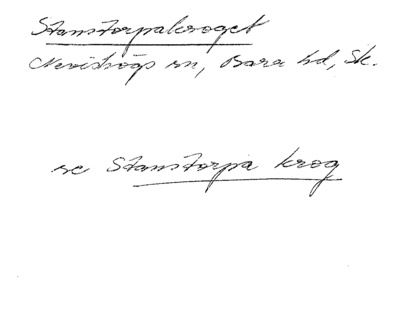 Stanstorpakroget
Nevishögs sn, Bara hd, Sk.
se Stanstorpa krog